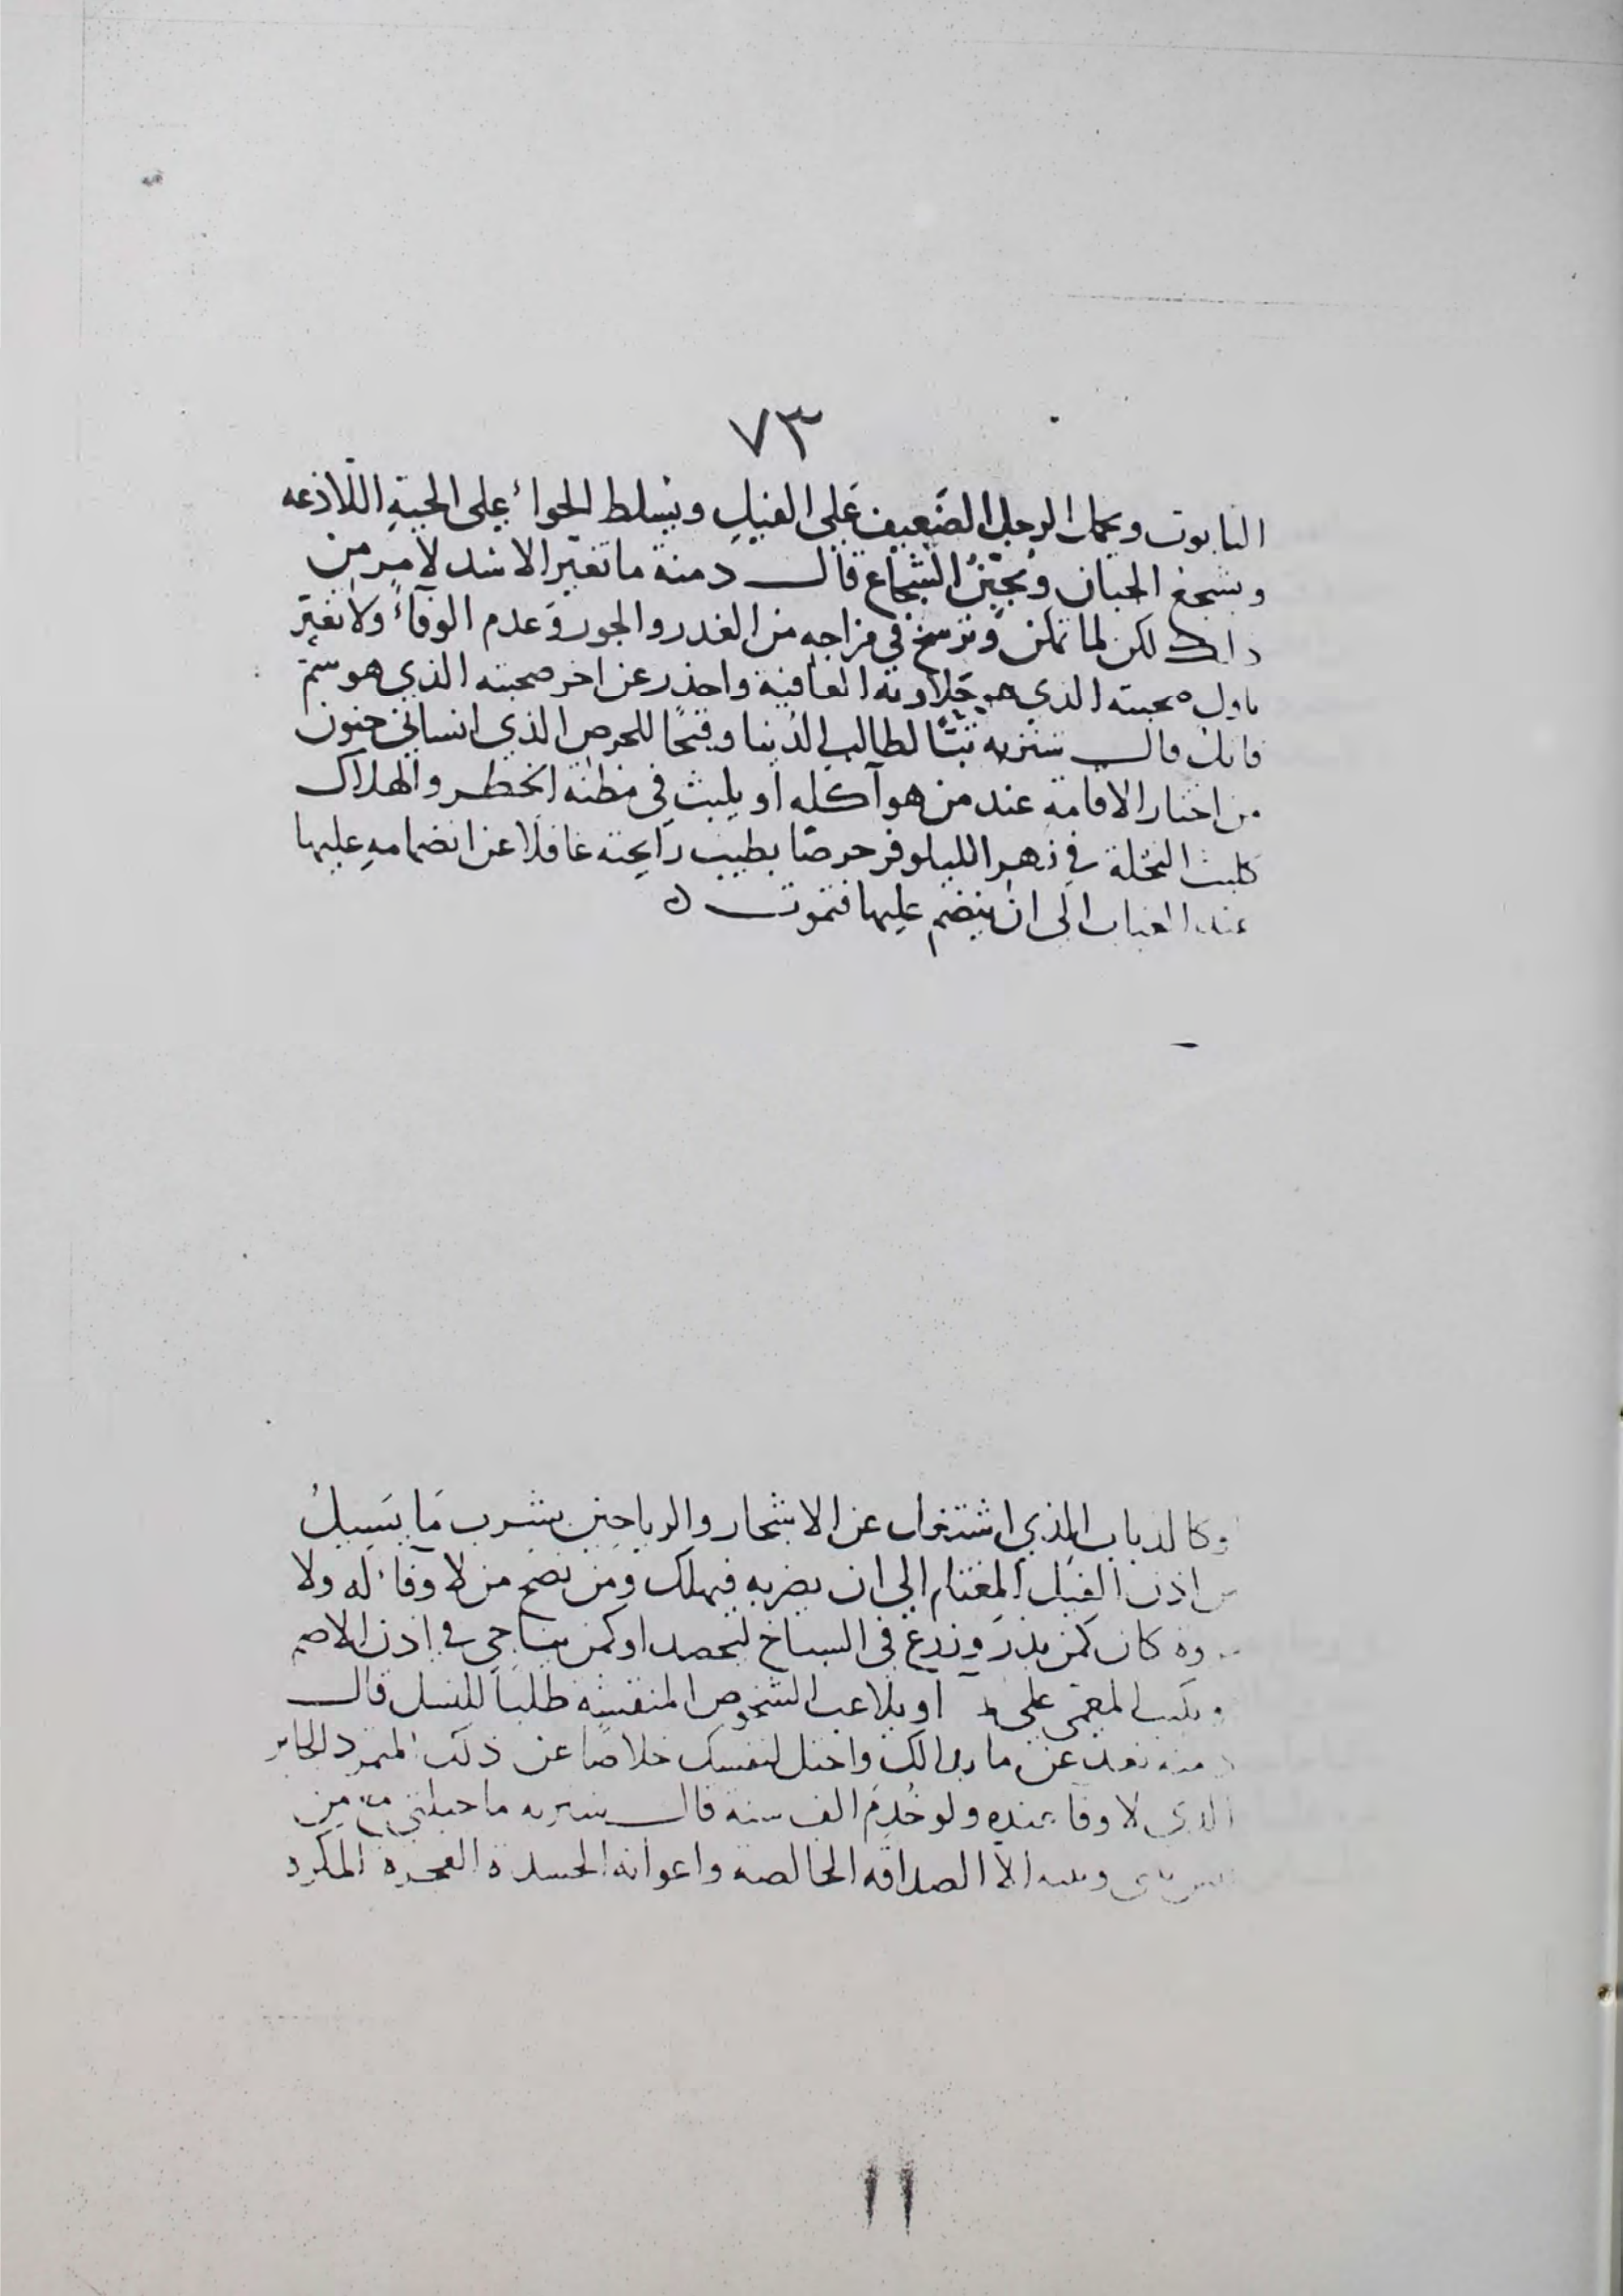 ٧٣
التابوت ويحمل الرجل الضعيف على الفيل ويسلط الحواء على الحية اللاذعه
ويشجع الجبان ويجبن الشجاع قال دمنة ما تغير الاسد لامر من
ذلك لكن لما تمكن وترسخ في مزاجه من الغدر والجور وعدم الوفاء ولا تغتر
باول صحبته الذي هو حلاوته العافية واحذر عن اخر صحبته الذي هو سم
قاتل قال شنزبه تبا لطالب الدنيا وقبحا للحرص الذي انساني جنون
من اختار الاقامة عند من هو آكله او يلبث في مظنه الخطر والهلاك
كلبث النحلة في زهر الليلوفر حرصا بطيب رايحته غافلا عن انضمامه عليها
عند الغياب الى ان ينضم عليها فتموت ٥
وكالذباب الذي اشتغل عن الاشجار والرياحين بشرب ما يسيل
من اذن الفيل المغتلم الى ان يضربه فيهلك ومن نصح من لا وفاء له ولا
كان كمن بذر وزرع في السباخ ليحصد او كمن يناجي في اذن الاصم
المعمى على او يلاعب الشخوص المنقشة طلبا للنسل قال
دمنه تعد عن ما بدالك واحتل لنفسك خلاصا عن ذلك المتمرد الجاير
الذي لا وفا عنده ولو خُدِمَ الف سنة قال شنزبه ما حيلتي من
وبينه الا الصداقه الخالصه واعوانه الحسدة الفجرة المكرة
١١